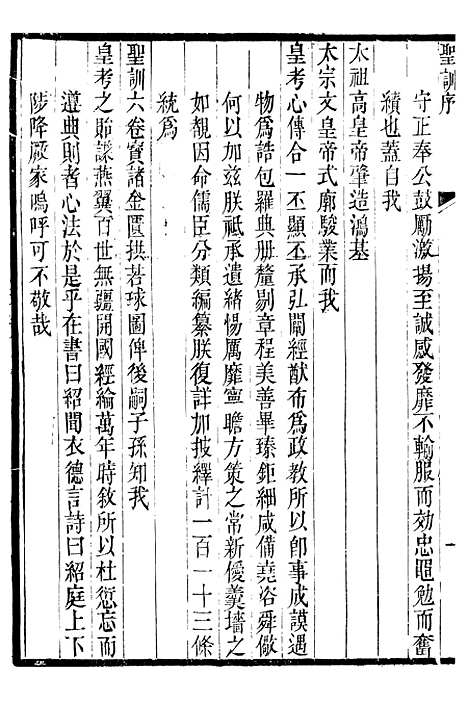 聖訓序
守正奉公鼓勵激揚至誠感發靡不輸服而効忠黽勉而奮
績也蓋自我
太祖高皇帝肇造鴻基
太宗文皇帝式廓駿業而我
皇考心傳合一丕顯丕承弘闡經猷布為政教所以卽事成謨遇
物爲誥包羅典册釐剔章程美善畢臻鉅細咸備堯咨舜儆
何以加兹朕祗承遺緒惕厲靡寧瞻方策之常新僾羹墻之
如覩因命儒臣分類編纂朕復詳加披繹計一百一十三條
統爲
聖訓六卷寶諸金匱拱若球圖俾後嗣子孫知我
皇考之貽謀燕翼百世無疆開國經綸萬年時敘所以杜愆忘而
遵典則者心法於是乎在書曰紹聞衣德言詩曰紹庭上下
陟降厥家嗚呼可不敬哉
一